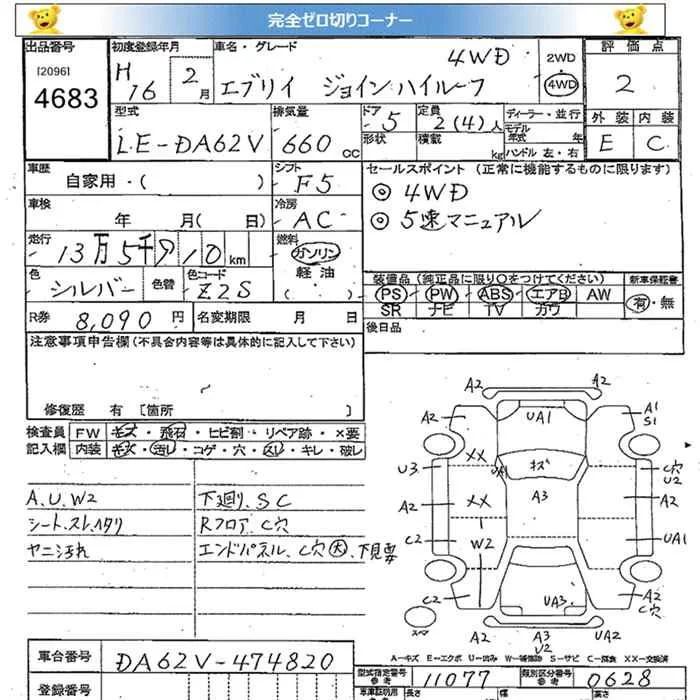 完全ゼロ切りコーナー
出品番号 初度登録年月 車名・グレード 評価点
[20961 4683
H16 2月 エブリイ ジョインハイルーフ 4WD 2WD 4WD 2
型式 排気量 ドア 5 定員 2(4)人 ディーラー・並行 外装 内装
LE-DA62V 660cc 形状 積載 kg モデル年式 年 ハンドル 左・右 E C
車歴 シフト セールスポイント(正常に機能するものに限ります)
自家用・( ) F5 ◎ 4WD
車検 冷房 ◎ 5速マニュアル
年 月( 日) AC
走行 13万5千910km 燃料 ガソリン
軽油
( )
色 シルバー 色替 色コード Z2S
装備品(純正品に限り○をつけてください) 新車保証書
PS・PW・ABS・エアB AW 有・無
SR ナビ TV カワ
R券 8,090円 名変期限 月 日 後日品
注意事項申告欄(不具合内容等は具体的に記入して下さい)
修復歴 有 [箇所 ]
検査員 FW キズ・飛石・ヒビ割・リペア跡・×要
記入欄 内装 キズ・汚レ・コゲ・穴・スレ・キレ・破レ
A.U.W2 下廻り.SC
シート.スレ.ヘタリ Rフロア.C穴
ヤニ汚れ エンドパネル.C穴大.下見要
A2 A2
A2 UA1 A1
S1
XX UA1 キズ
U3 C穴
U2
A2 XX A3 A2
C2 W2 UA1
C2 UA3 A2
C穴
スペア A2 A3 UA2
U2
A=キズ E=エクボ U=凹み W=補修跡 S=サビ C=腐食 XX=交換済
車台番号 DA62V-474820 型式指定番号 参考 11077 類別区分番号 参考 0628
登録番号 長さ 幅 高さ